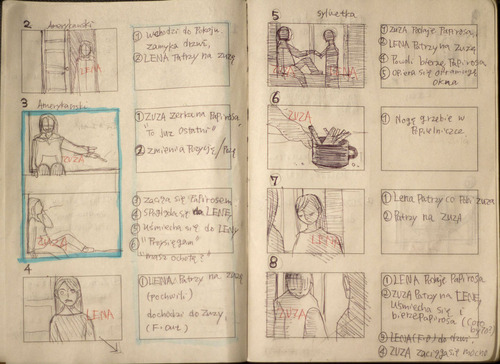 2 Amerykański
LENA
① Wchodzi do Pokoju
zamyka drzwi,
② LENA Patrzy na zuzę
3 Amerykański
ZUZA
① ZUZA zerka na Papierosa
"To już ostatni"
② zmienia Pozycję/Pozę
ZUZA
③ zaciąga się Papierosem
④ spogląda się da LENĘ,
⑤ Uśmiecha się do LENY
⑥ "Przysięgam"
"masz ochotę?"
4
LENA
① LENA Patrzy na zuzę
(po chwili)
dochodzi do Zuzy,
(F-out)
5 Sylwetka
ZUZA LENA
① ZUZA Podaje Papierosa,
② LENA Patrzy na zuzę
⑤ Opiera się o ramugę
okna
6
① Nogę grzebie w
Popielniczce
7
LENA
① Lena Patrzy co robi zuza
② Patrzy na ZUZA
8
ZUZA
① LENA Podaje Papierosa
② ZUZA Patrzy na LENĘ,
Uśmiecha się i
bierze Papierosa
③ LENA (F-in) do drzwi,
④ ZUZA zaciąga się mocno